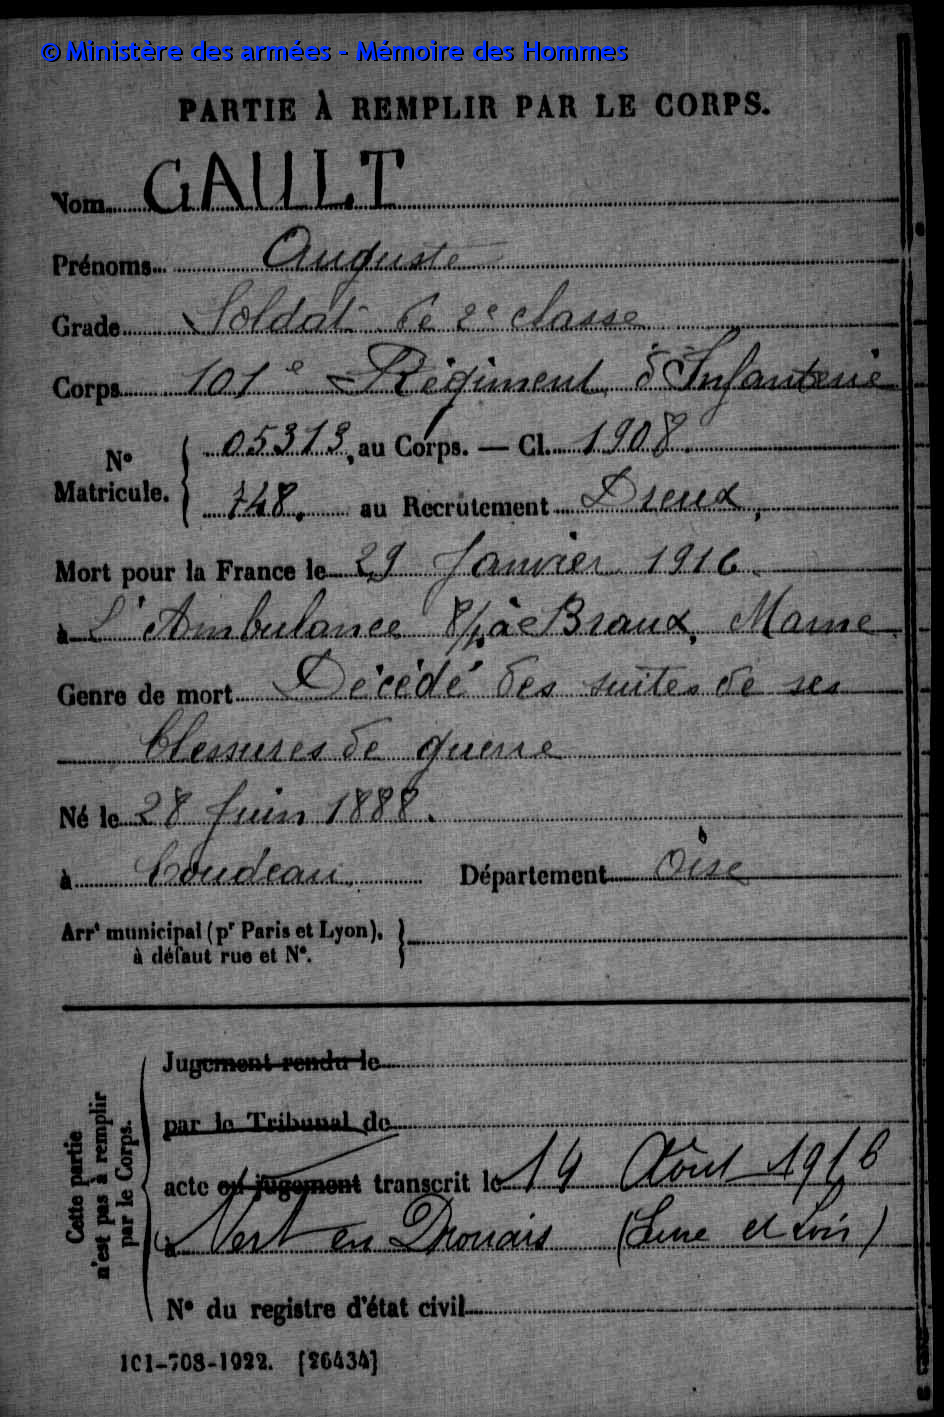 © Ministère des armées - Mémoire des Hommes
PARTIE À REMPLIR PAR LE CORPS.
Nom GAULT
Prénoms Auguste
Grade Soldat de 2e classe
Corps 101e Régiment d'Infanterie
N° Matricule. 05313, au Corps. — Cl. 1908.
748. au Recrutement Dreux,
Mort pour la France le 29 Janvier 1916.
à L'Ambulance 8/4 à Braux, Marne.
Genre de mort Décédé des suites de ses
blessures de guerre
Né le 28 Juin 1888.
à Coudeau. Département Oise
Arrt municipal (pr Paris et Lyon),
à défaut rue et N°.
Cette partie n'est pas à remplir par le Corps.
Jugement rendu le
par le Tribunal de
acte ou jugement transcrit le 14 Août 1916
à Vert en Drouais (Eure et Loir)
N° du registre d'état civil
101-708-1922. [26434]